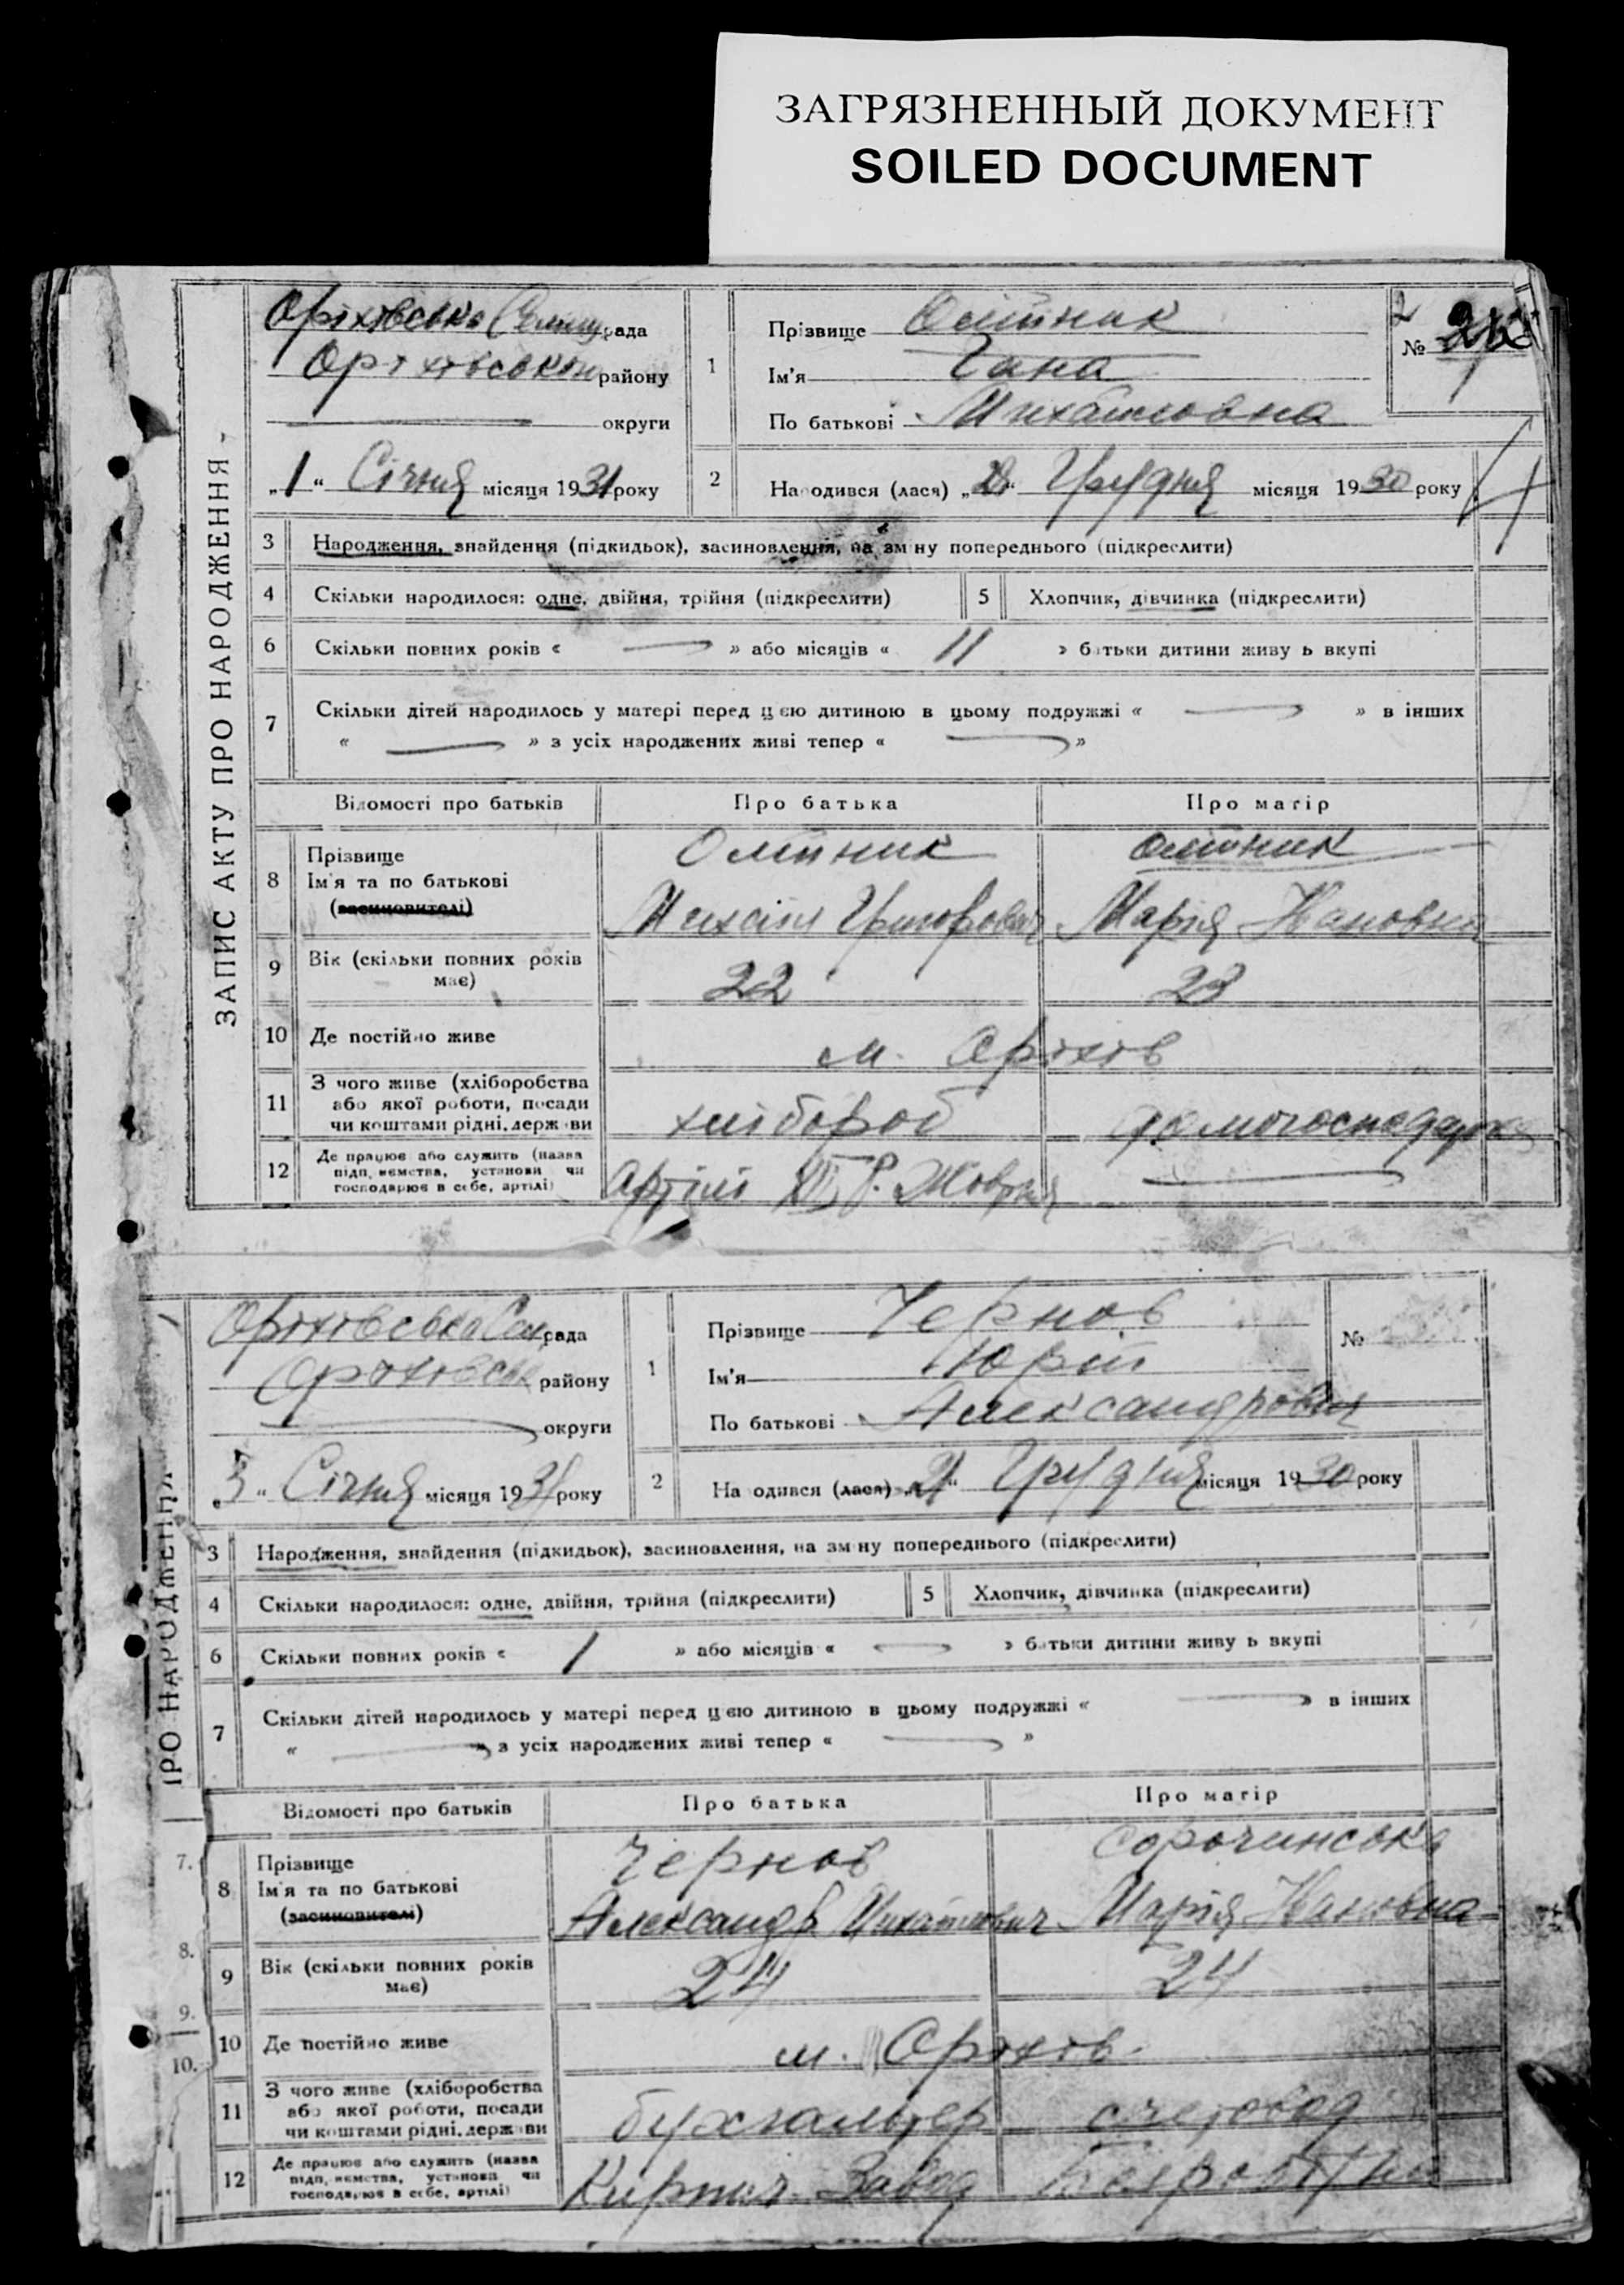 ЗАГРЯЗНЕННЫЙ ДОКУМЕНТ
SOILED DOCUMENT
ЗАПИС АКТУ ПРО НАРОДЖЕННЯ
Оріхівська Селищ рада
Оріхівськ району
округи
„1“ Січня місяця 1931 року
1
Прізвище Олійник
Ім'я
По батькові Михайловна
№
2
Народився (лася) Грудня місяця 1930 року
3 Народження, знайдення (підкидьок), засиновлення, на зміну попереднього (підкреслити)
4 Скільки народилося: одне, двійня, трійня (підкреслити) 5 Хлопчик, дівчинка (підкреслити)
6 Скільки повних років « — » або місяців « 11 » батьки дитини живуть вкупі
7 Скільки дітей народилось у матері перед цією дитиною в цьому подружжі « — » в інших
« — » з усіх народжених живі тепер « — »
Відомості про батьків Про батька Про матір
8 Прізвище Олійник Олійник
Ім'я та по батькові
(засиновителі) Михайло Григорович Марія Івановна
9 Вік (скільки повних років має) 22 23
10 Де постійно живе м. Оріхів
11 З чого живе (хліборобства
або якої роботи, посади
чи коштами рідні, держави хлібороб домогосподарка
12 Де працює або служить (назва
підприємства, установи чи
господарює в себе, артілі) Артіль XIII Р. Жовтня —
РО НАРОДЖЕННЯ
Оріхівська Сел рада
Оріхівськ району
округи
„3“ Січня місяця 1931 року
1
Прізвище Чернов
Ім'я Юрій
По батькові Александрович
№
2
Народився (лася) „21“ Грудня місяця 1930 року
3 Народження, знайдення (підкидьок), засиновлення, на зміну попереднього (підкреслити)
4 Скільки народилося: одне, двійня, трійня (підкреслити) 5 Хлопчик, дівчинка (підкреслити)
6 Скільки повних років « 1 » або місяців « — » батьки дитини живуть вкупі
7 Скільки дітей народилось у матері перед цією дитиною в цьому подружжі « — » в інших
« — » з усіх народжених живі тепер « — »
Відомості про батьків Про батька Про матір
7.
8 Прізвище Чернов Сорочинська
Ім'я та по батькові
(засиновителі) Александр Михайлович Марія Івановна
8.
9 Вік (скільки повних років має) 24 24
9.
10 Де постійно живе м. Оріхів
10.
11 З чого живе (хліборобства
або якої роботи, посади
чи коштами рідні, держави бухгальтер счетовод
12 Де працює або служить (назва
підприємства, установи чи
господарює в себе, артілі) Кирпич. Завод Безробітна